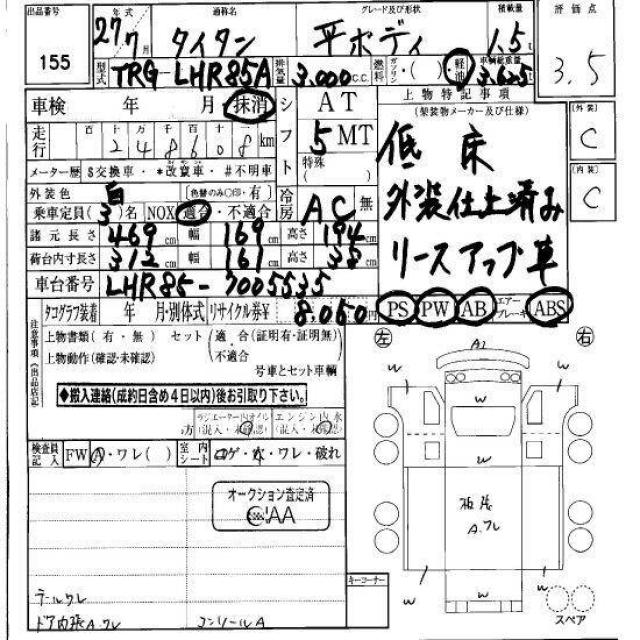 出品番号 155
年式 27 7月
通称名 タイタン
グレード及び形状 平ボディ
積載量 1.5t
評価点 3.5
型式 TRG-LHR85A
排気量 3,000 c.c.
燃料 ガソリン・( ) 軽油
車輌総重量 3,625
車検 年 月 抹消
シフト AT 5 MT 特殊( )
上物特記事項 (架装物メーカー及び仕様)
低床
外装仕上済み
リースアップ車
(外装) C
(内装) C
走行 百 十 万 千 百 十 km
248608
メーター歴 $交換車・*改竄車・#不明車
外装色 白 (色替のみ○印・有)
冷房 AC 無
乗車定員(3)名 NOX 適合・不適合
諸元長さ 469cm 幅 169cm 高さ 194cm
荷台内寸長さ 312cm 幅 161cm 高さ 38cm
車台番号 LHR85-7005535
タコグラフ装着 年 月・別体式
リサイクル券¥ 8,060円
PS PW AB エアーブレーキ ABS
注意事項(出品店記
上物書類(有・無) セット(適合(証明有・証明無)・不適合
上物動作(確認・未確認) 号車とセット車輌
◆搬入連絡(成約日含め4日以内)後お引取り下さい。
ラジエーター内オイル(混入・未確認)
エンジン内水(混入・未確認)
検査員記入 FW A・ワレ( )
室内シート コゲ・穴・ワレ・破れ
オークション査定済
AA
テールワレ
ドア内張A.ワレ
コンソールA
キーコーナー
左 右
A2
W W
W
W
板張
A.ワレ
W W W
スペア